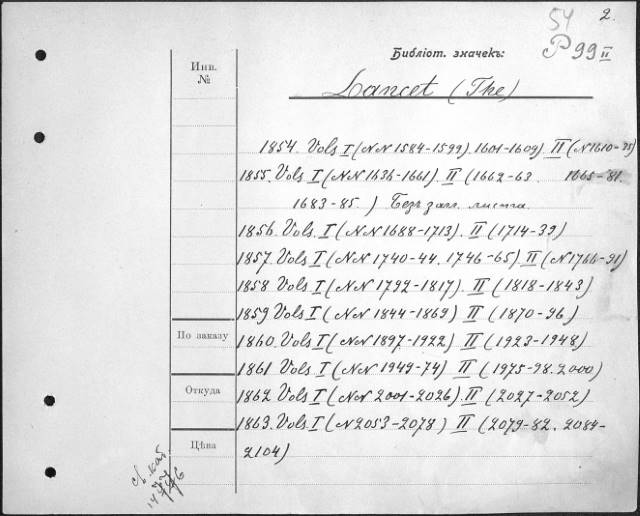 54 2.
Библіот. значекъ: P 99 II
Инв. №
Lancet (The)
1854. Vols I (NN 1584-1599). 1601-1609) II (N 1610-35)
1855. Vols I (NN 1636-1661). II (1662-63. 1665-81.
1683-85.) Безъ загл. листа.
1856. Vols. I (NN 1688-1713). II (1714-39)
1857. Vols I (NN 1740-44. 1746-65) II (N 1766-91)
1858 Vols I (NN 1792-1817). II (1818-1843)
1859 Vols I (NN 1844-1869) II (1870-96)
По заказу
1860. Vols I (NN 1897-1922) II (1923-1948)
1861 Vols I (NN 1949-74) II (1975-98. 2000)
Откуда
1862 Vols I (NN 2001-2026) II (2027-2052)
1863. Vols I (N 2053-2078) II (2079-82. 2084-
Цѣна
2104)